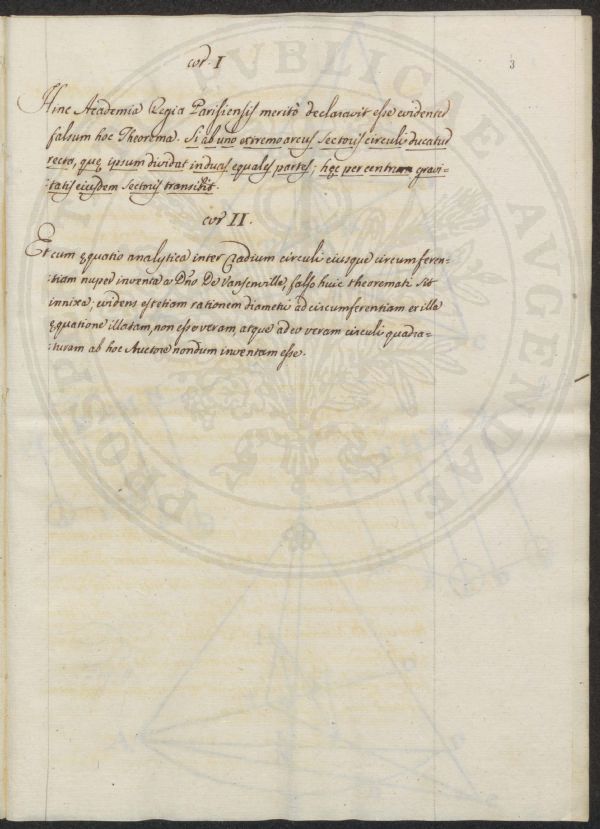 3
cor. I
Hinc Academia Regia Parisiensis meritò declaravit esse evidenter
falsum hoc Theorema. Si ab uno extremo arcus Sectoris circuli ducatur
recta, quę ipsum dividat in duas equales partes; hęc per centrum gravi=
=tatis eiusdem Sectoris transibit.
cor II.
Et cum ęquatio analytica inter Radium circuli eiusque circumferen=
=tiam nuper inventa a Dño De Vansenville, falso huic theoremati sit
innixa; evidens est etiam rationem diametri ad circumferentiam ex illa
ęquatione illatam, non esse veram, atque adeo veram circuli quadra=
=turam ab hoc Auctore nondum inventam esse.
PUBLICAE
AUGENDAE
PROSP